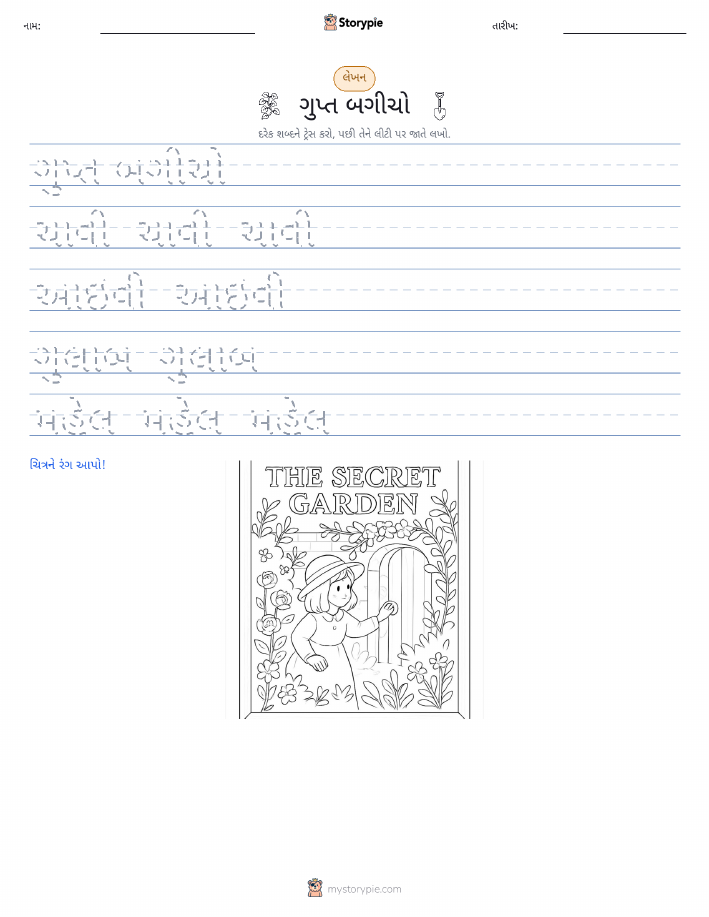 નામ:
Storypie
તારીખ:
લેખન
ગુપ્ત બગીચો
દરેક શબ્દને ટ્રેસ કરો, પછી તેને લીટી પર જાતે લખો.
ગુપ્ત બગીચો
ચાવી ચાવી ચાવી
આઇવી આઇવી
ગુલાબ ગુલાબ
મહેલ મહેલ મહેલ
ચિત્રને રંગ આપો!
THE SECRET
GARDEN
mystorypie.com